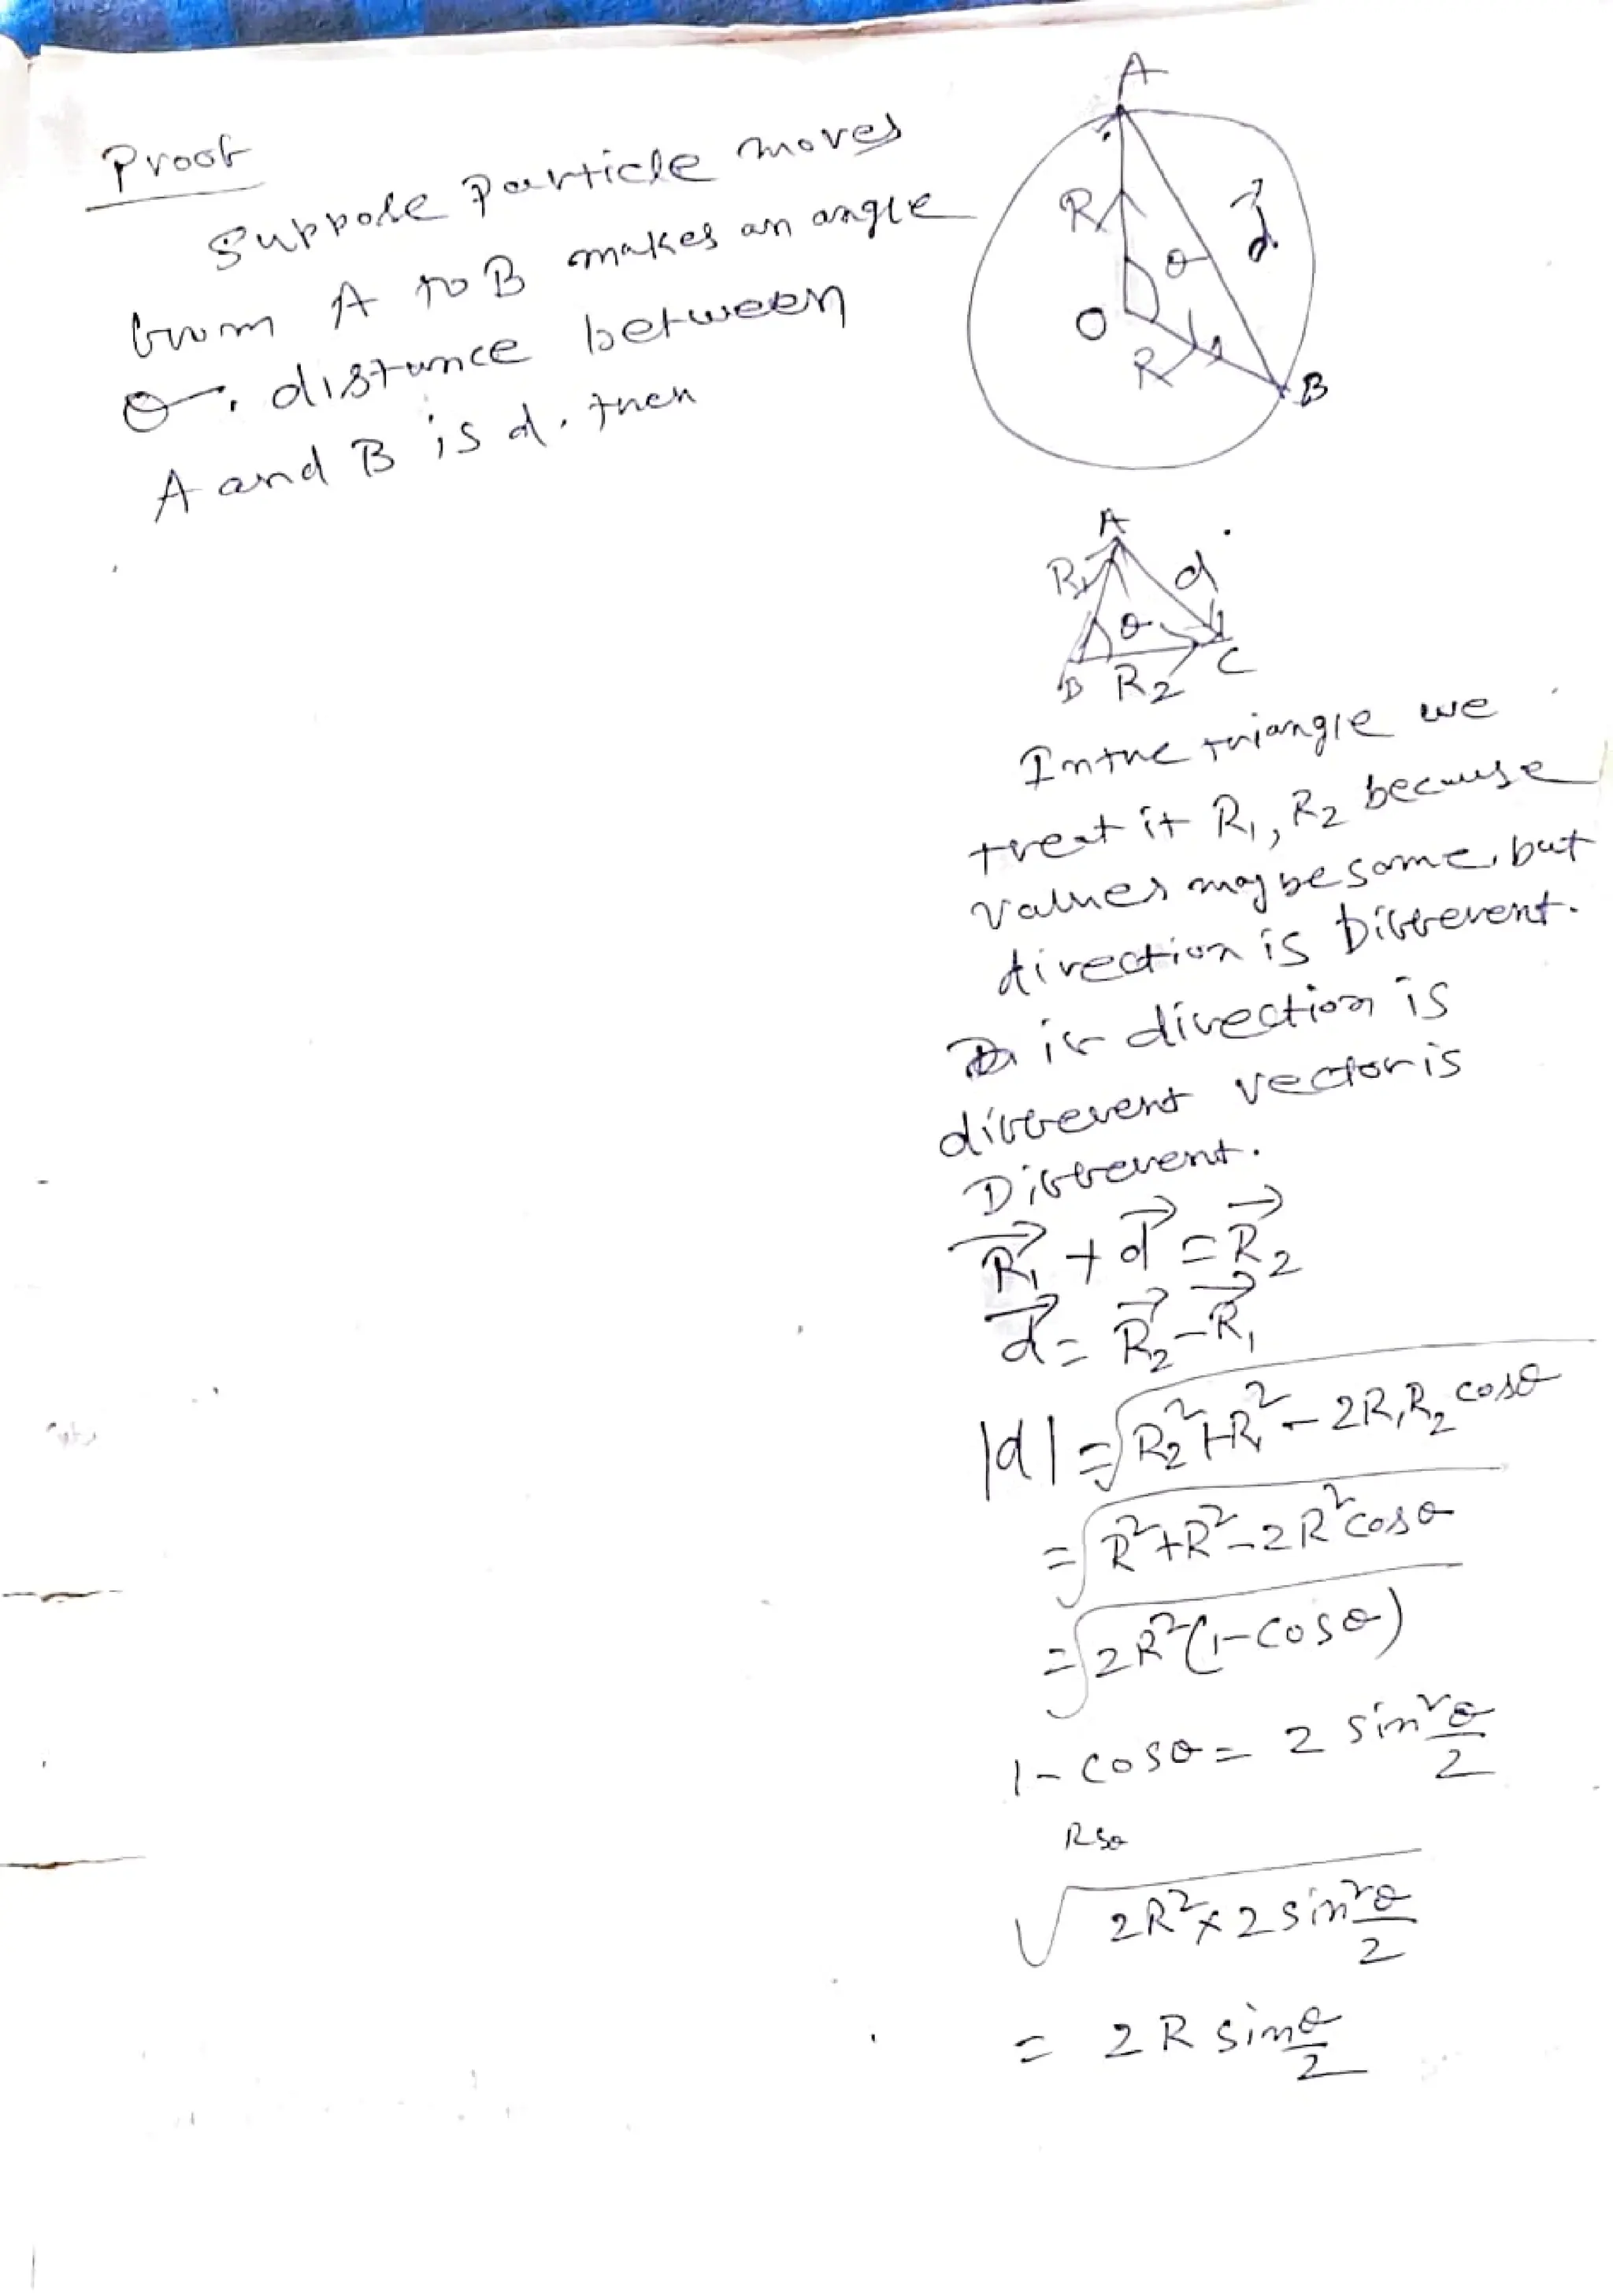 Proof
Suppose Particle moves
from A to B makes an angle
θ. distance between
A and B is d. then
A
R
θ
d⃗
O
R
B
A
R₁
d
θ
B
R₂
C
In the triangle we
treat it R₁, R₂ because
values may be same, but
direction is Different.
if direction is
different vector is
Different.
R₁⃗ + d⃗ = R₂⃗
d⃗ = R₂⃗ - R₁⃗
|d| = √(R₂² + R₁² - 2R₁R₂ cosθ)
= √(R² + R² - 2R² cosθ)
= √(2R²(1-cosθ))
1 - cosθ = 2 sin² θ/2
√(2R² × 2 sin² θ/2)
= 2R sin θ/2